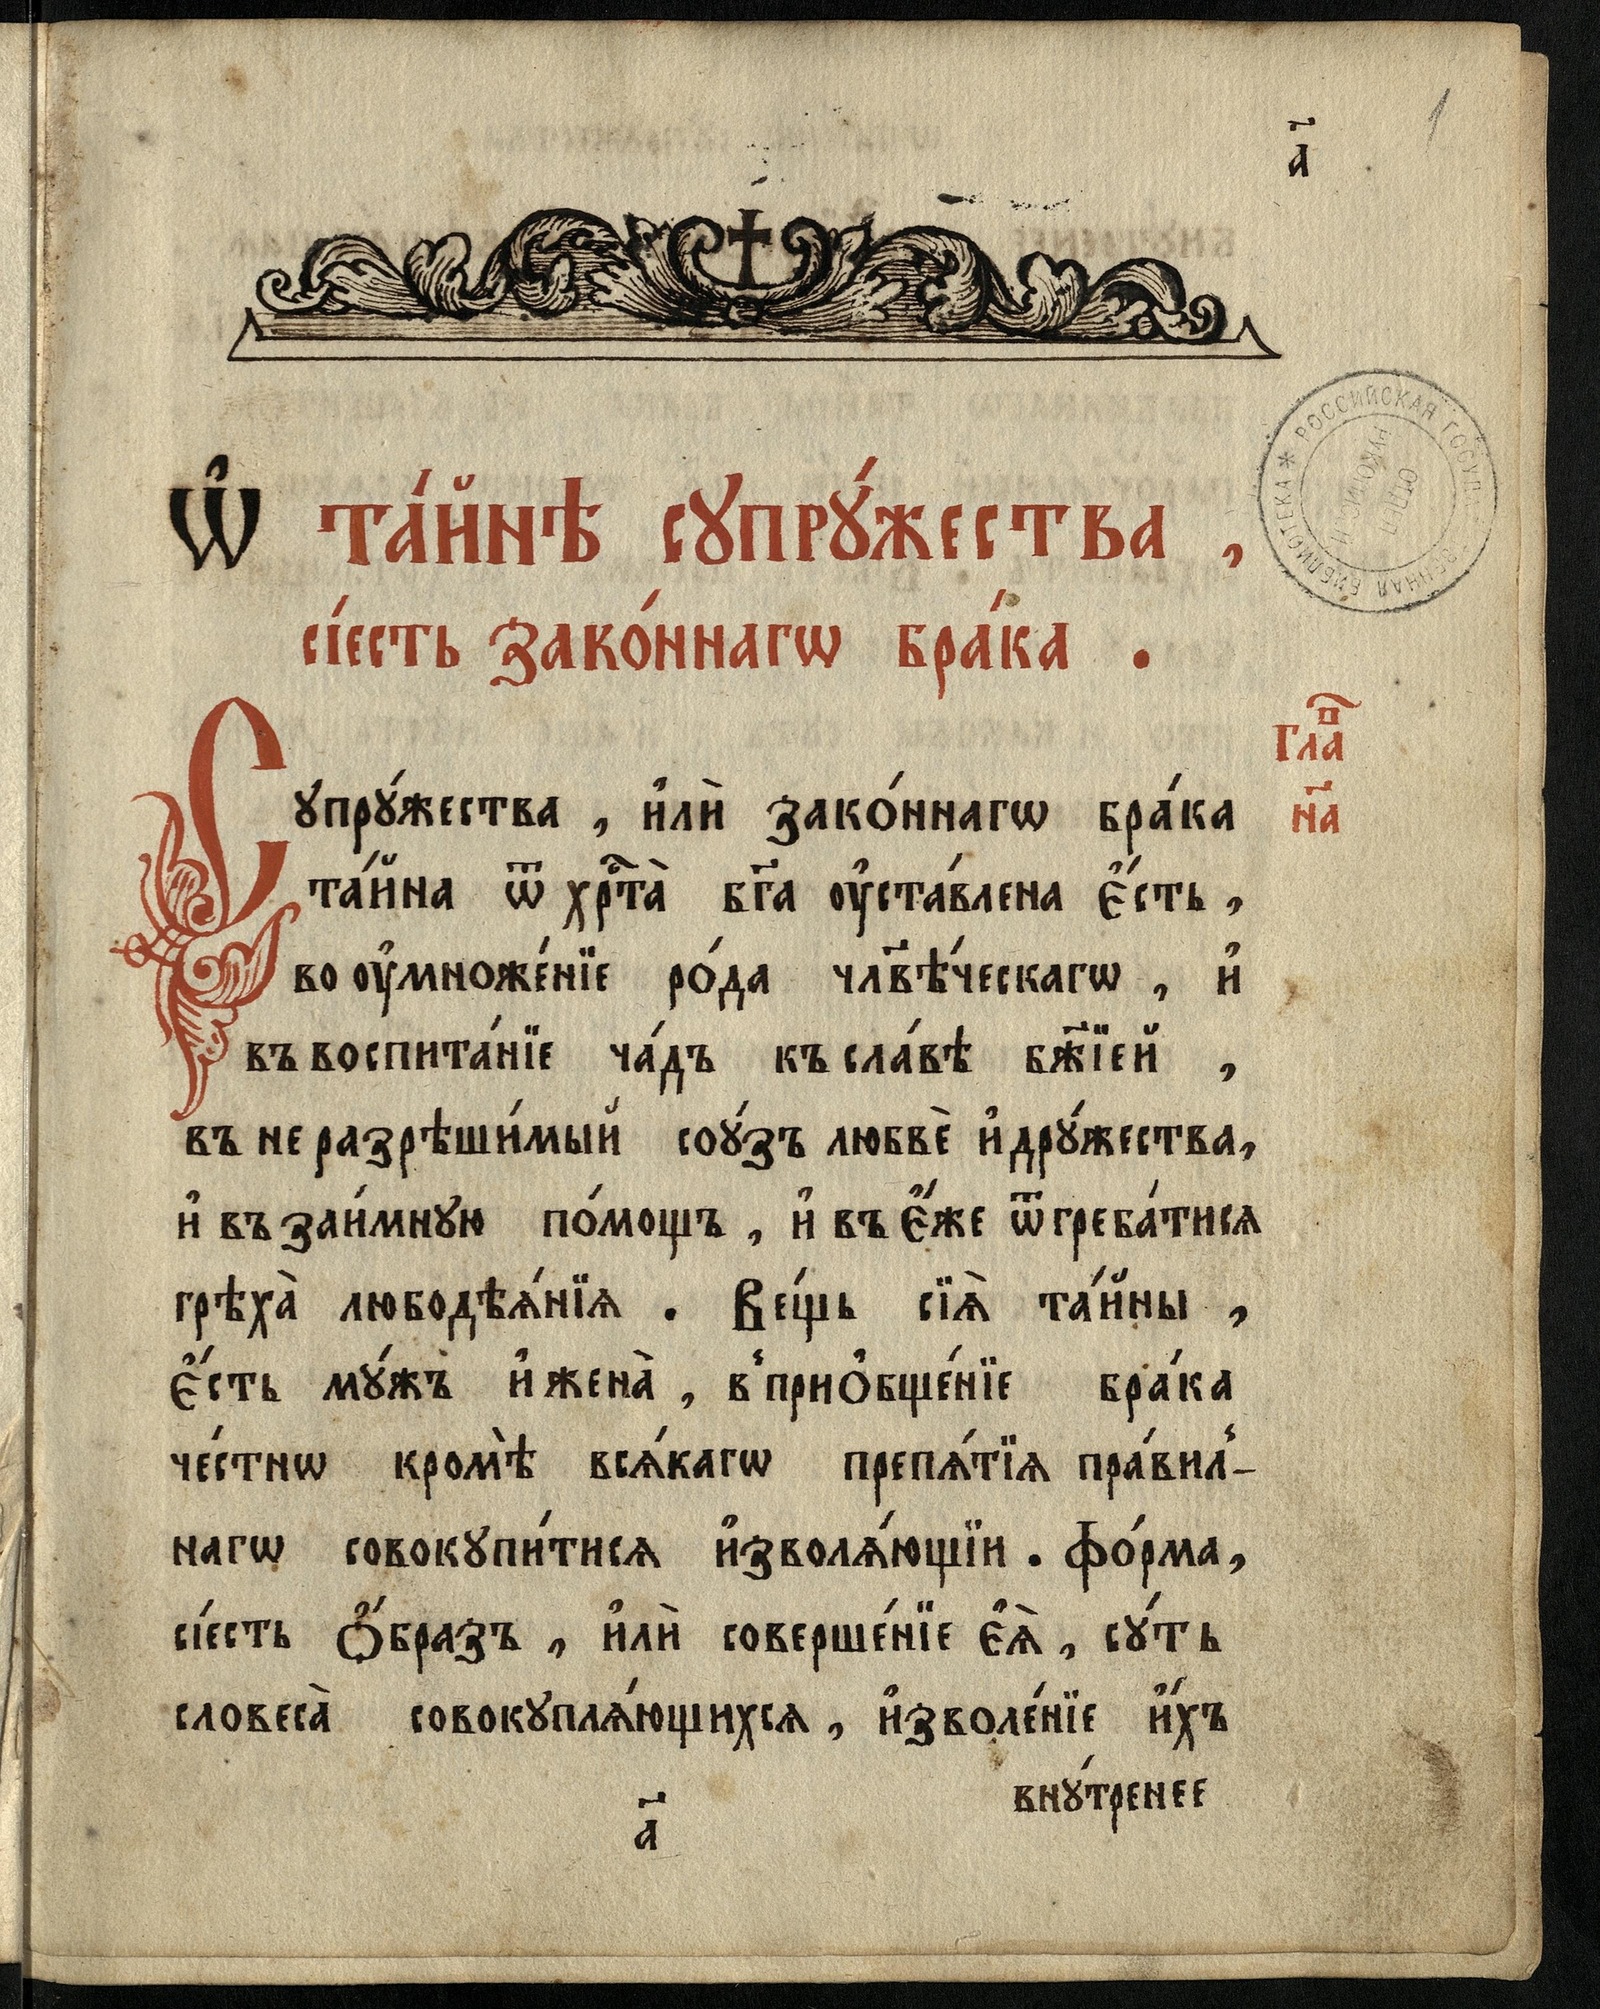 1
а҃
Ѡ҆ та́йнѣ супру́жества ,
сі́есть зако́ннагѡ бра́ка .
Гла̑в
н҃а
Супру́жества , и҆лѝ зако́ннагѡ бра́ка
та́йна ѿ хрⷭ҇та̀ бг҃а оу҆ста́влена є҆́сть ,
во оу҆множе́нїе ро́да члв҃ѣ́ческагѡ , и҆
въ воспита́нїе ча́дъ къ сла́вѣ бж҃їей ,
въ не разрѣши́мый соу́зъ любвѐ и҆ дру́жества,
и҆ въ заи́мную по́мощъ , и҆ въ є҆́же ѿгреба́тися
грѣха̀ любодѣѧ́нїѧ . Ве́щь сїѧ̀ та́йны ,
є҆́сть му́жъ и҆ жена̀ , в̾ прио҆бще́нїе бра́ка
че́стнѡ кромѣ̀ всѧ́кагѡ препѧ́тїѧ пра́вил̾-
нагѡ совокупи́тисѧ и҆зволѧ́ющїи . Фо́рма ,
сі́есть ѻ҆́бразъ , и҆лѝ соверше́нїе є҆ѧ̀ , су́ть
словеса̀ совокуплѧ́ющихсѧ , и҆зволе́нїе и҆́хъ
вну́тренее
а҃
РОССИЙСКАЯ ГОСУД ВЕННАЯ БИБЛИОТЕКА *
ОТДЕЛ
РУКОПИСЕЙ